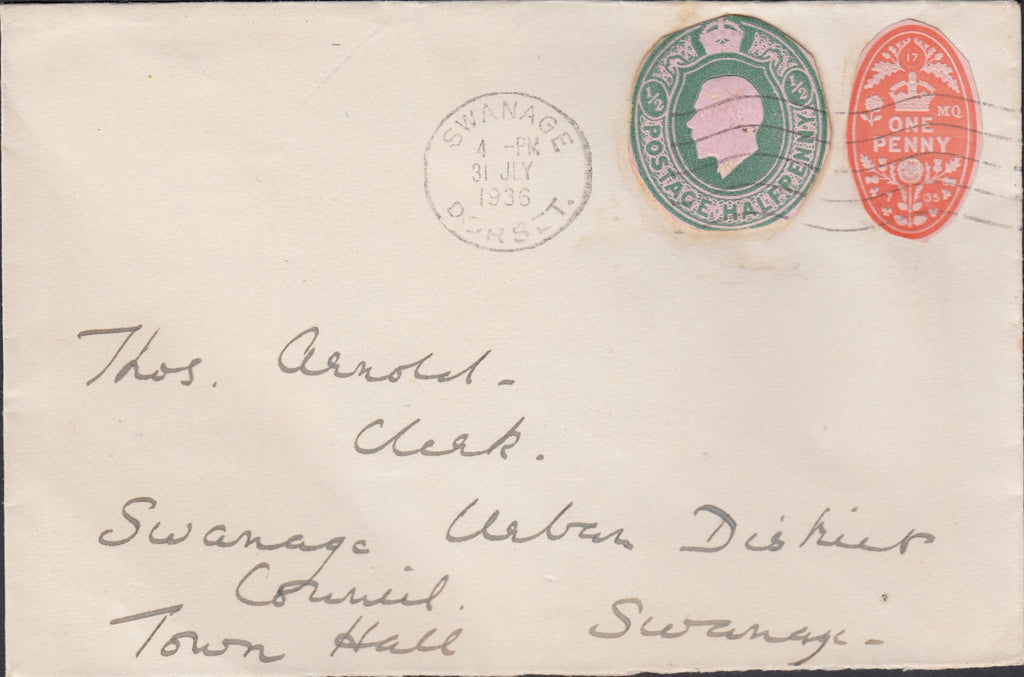 SWANAGE
4 -PM
31 JLY
1936
DORSET.
1/2 1/2
POSTAGE HALFPENNY
17
MQ
ONE
PENNY
7 35
Thos. Arnold -
Clerk.
Swanage Urban District
Council.
Town Hall Swanage -